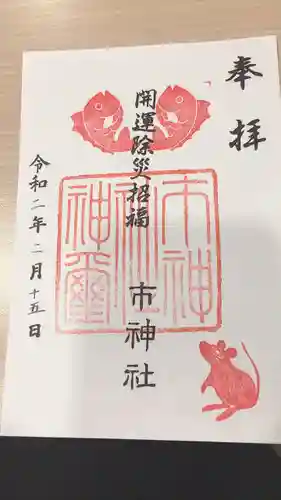 奉拝
開運除災招福
市神社
市神
神社
神璽
令和二年二月十五日